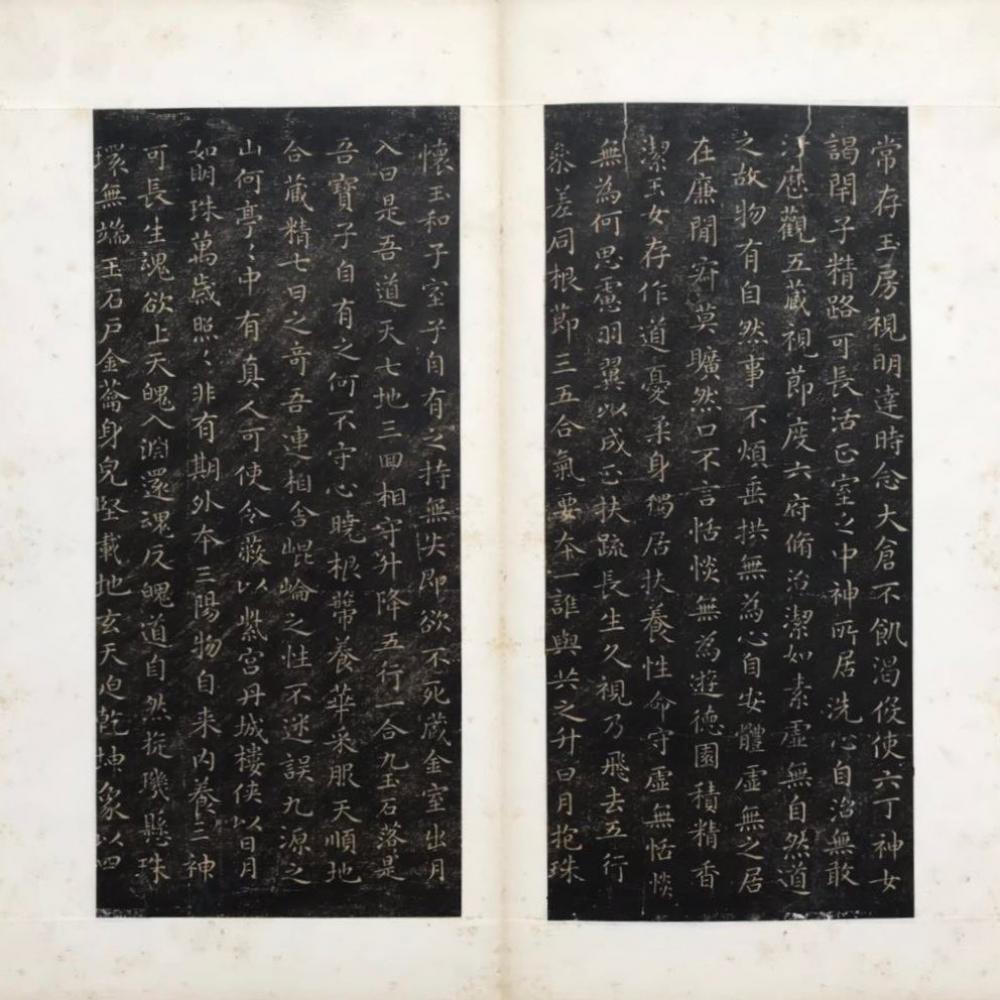 常存玉房視明達時念大倉不飢渴侵使六丁神女
謁閇子精路可長活正室之中神所居洗心自治無敢
汙應觀五藏視節度六府脩治潔如素虛無自然道
之故物有自然事不煩垂拱無為心自安體虛無之居
在廉間寂莫曠然口不言恬惔無為遊德園積精香
潔玉女存作道憂柔身獨居扶養性命守虛無恬惔
無為何思慮羽翼以成正扶疏長生久視乃飛去五行
叅差同根節三五合氣要本一誰與共之升日月抱珠
懷玉和子室子自有之持無失即欲不死藏金室出月
入日是吾道天七地三回相守升降五行一合九玉石落是
吾寶子自有之何不守心曉根蔕養華采服天順地
合藏精七日之奇吾連相舍崐崘之性不迷誤九源之
山何亭〻中有真人可使令蔽以紫宮丹城樓俠以日月
如明珠萬歲照〻非有期外本三陽物自来内養三神
可長生魂欲上天魄入淵還魂反魄道自然㧽璣懸珠
環無端玉石戶金籥身皃堅載地玄天迫乾坤象以四